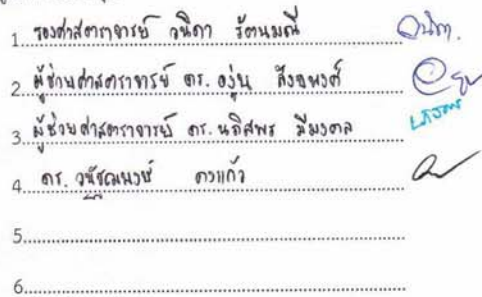 1. รองศาสตราจารย์ วนิดา รัตนมณี
2. ผู้ช่วยศาสตราจารย์ ดร. องุ่น สังขพงศ์
3. ผู้ช่วยศาสตราจารย์ ดร. นภิสพร มีมงคล
4. ดร. วนัฐฌพงษ์ คงแก้ว
5.
6.